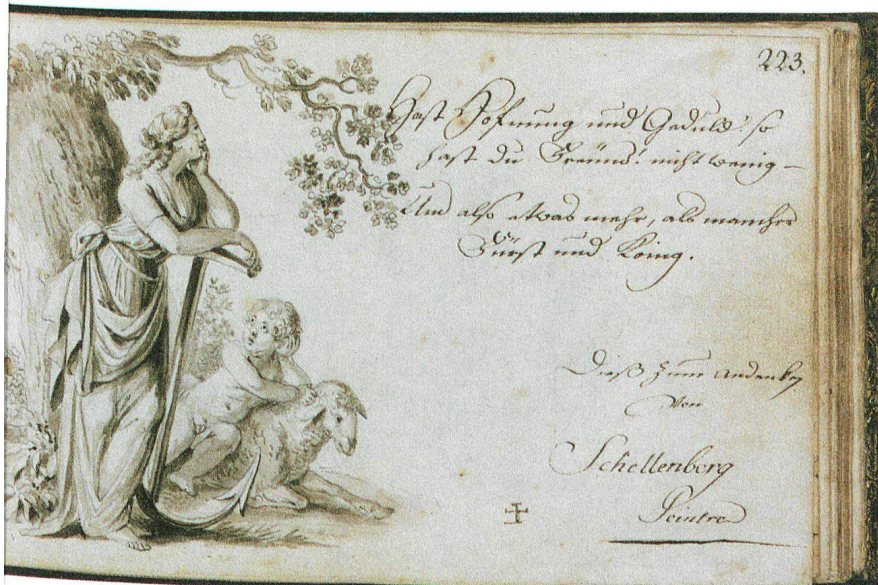 223.
Hast Hofnung und Geduld! so
hast du Freünd! nicht wenig –
Und also etwas mehr, als mancher
Fürst und König.
Dieß zum Andenken
von
Schellenberg
Peintre